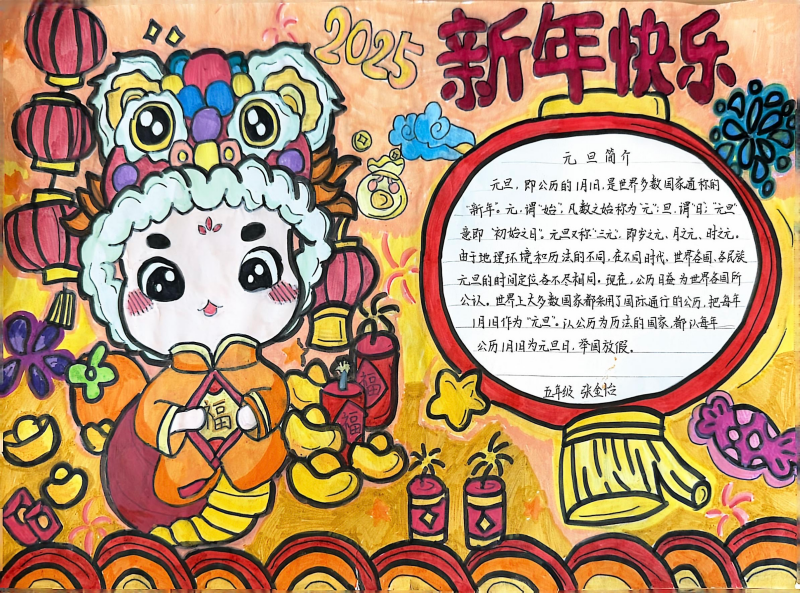 2025
新年快乐
元旦简介
元旦，即公历的1月1日，是世界多数国家通称的
“新年”。元，谓“始”，凡数之始称为“元”；旦，谓“日”；“元旦”
意即“初始之日”。元旦又称“三元”，即岁之元、月之元、时之元。
由于地理环境和历法的不同，在不同时代，世界各国、各民族
元旦的时间定位各不尽相同。现在，公历日益为世界各国所
公认。世界上大多数国家都采用了国际通行的公历，把每年
1月1日作为“元旦”。认公历为历法的国家，都认每年
公历1月1日为元旦日，举国放假。
五年级 张金怡
福
福
福